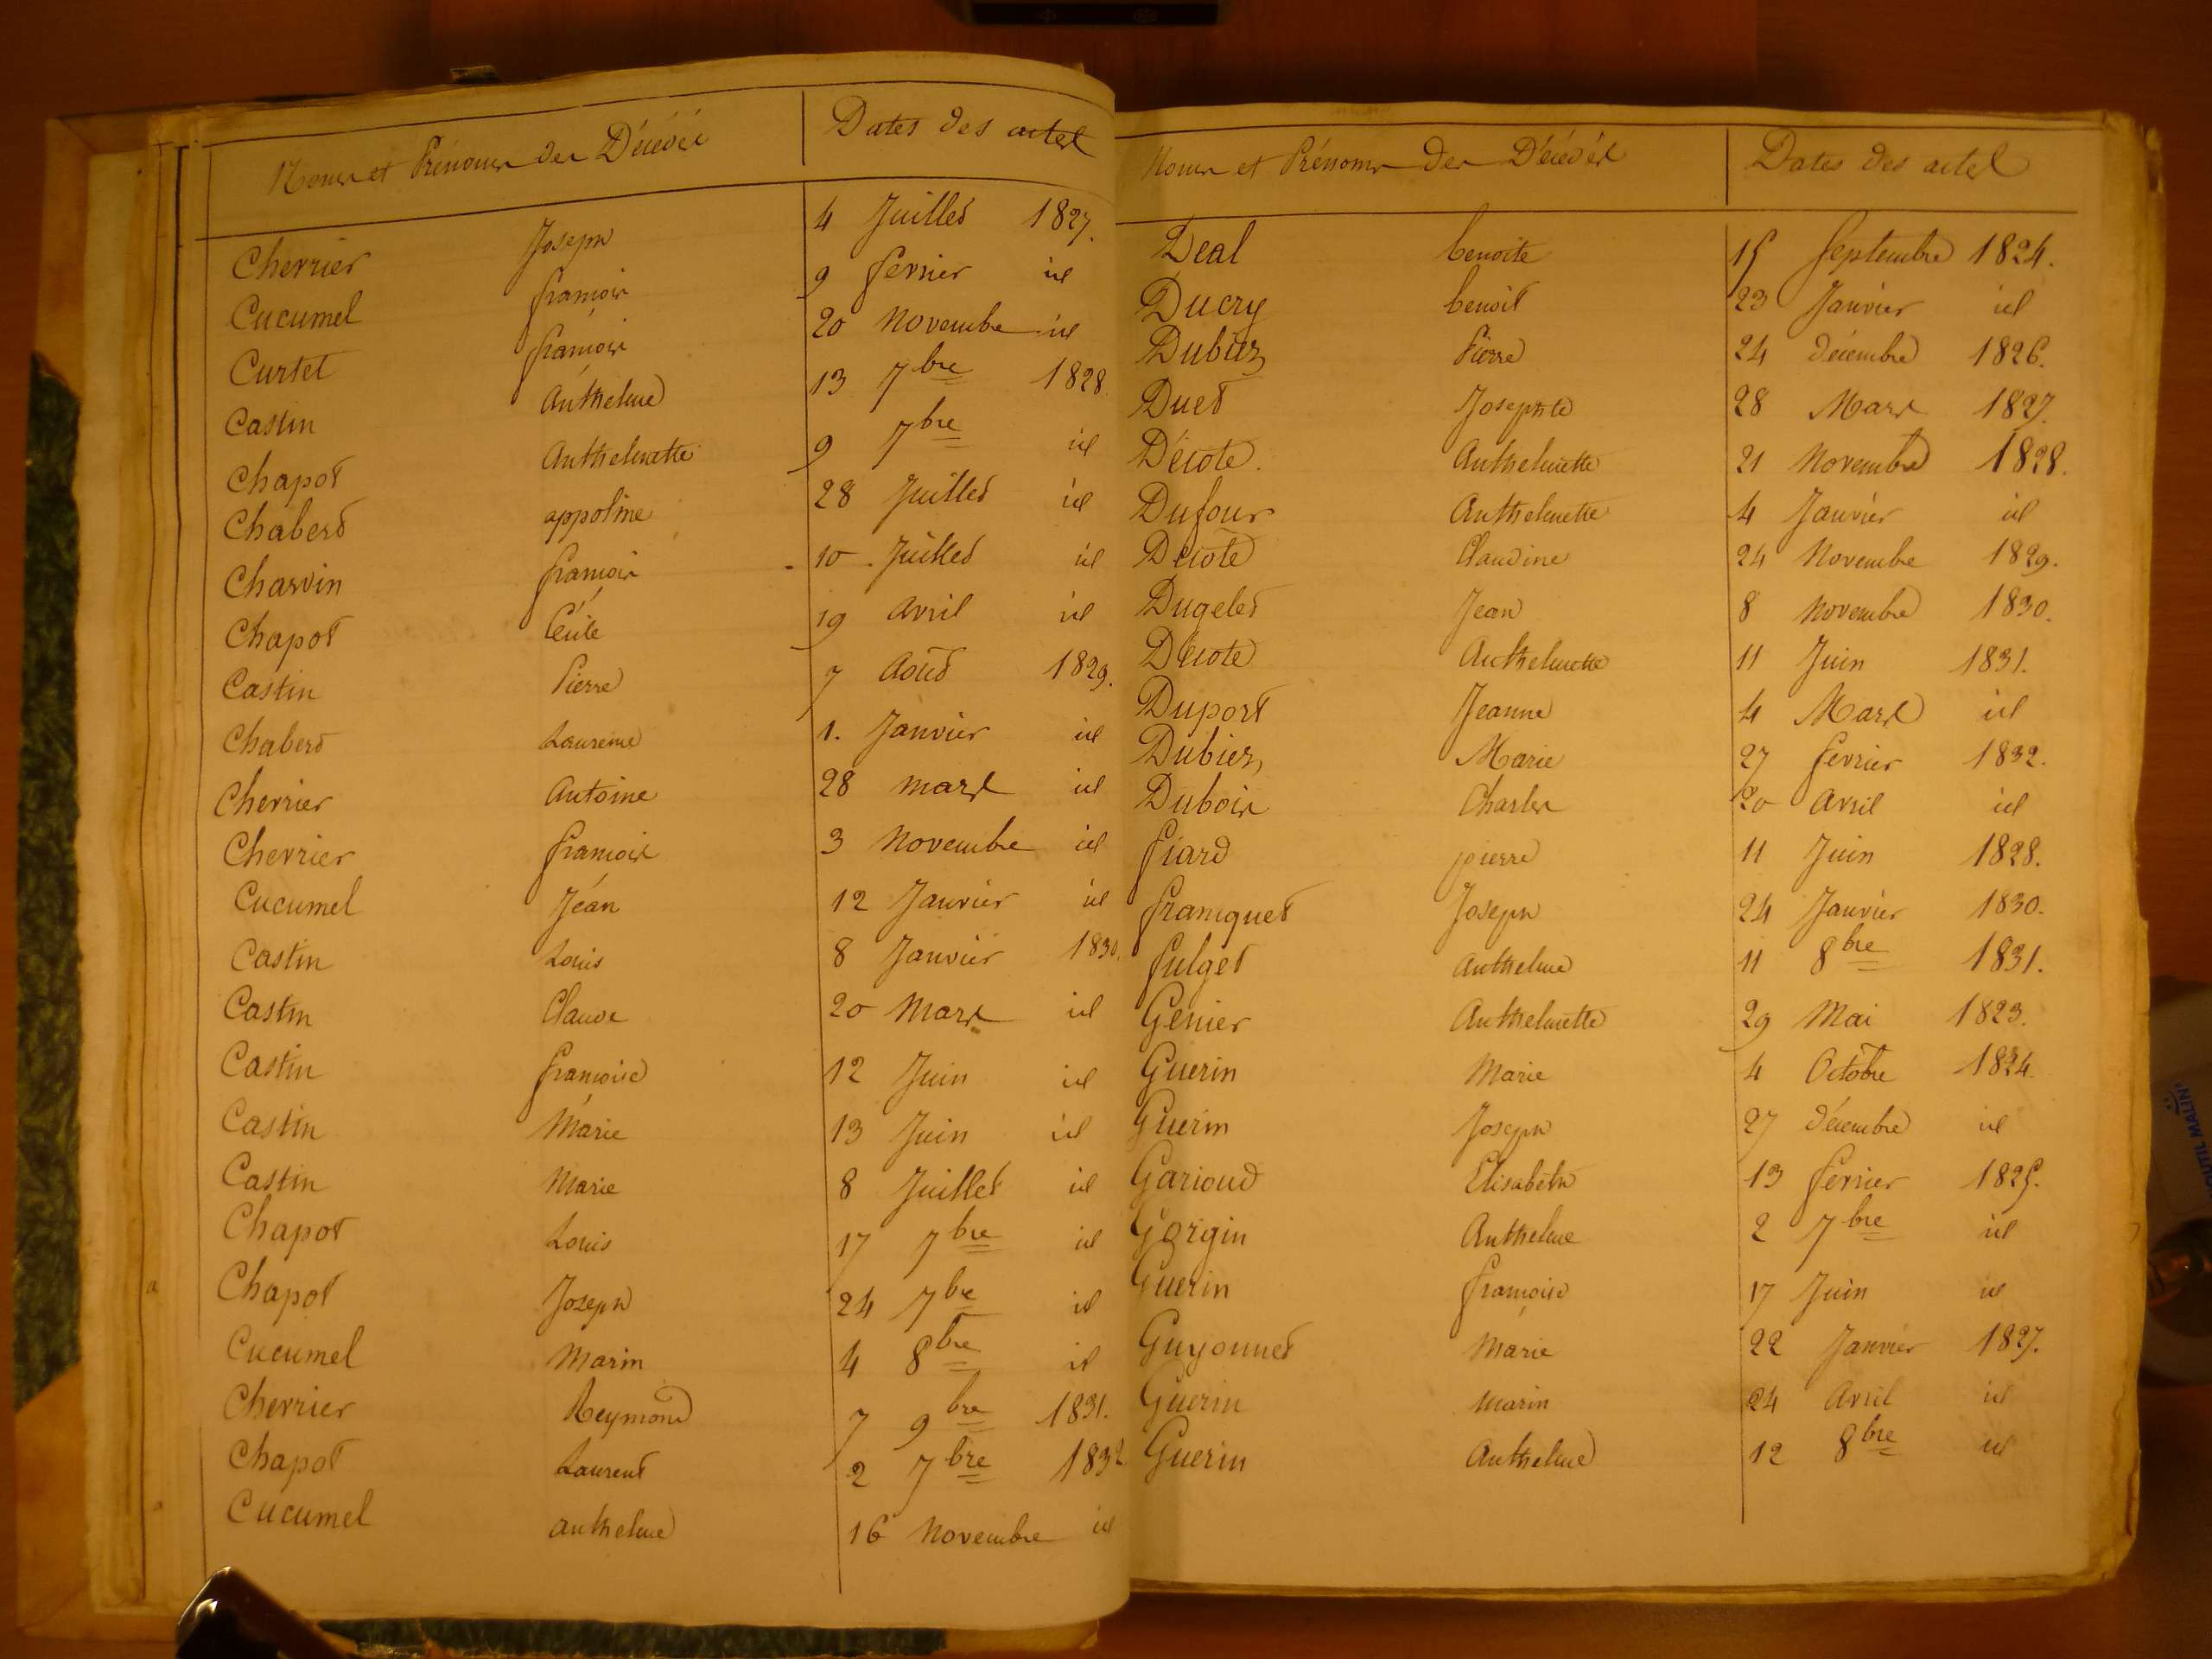 Noms et Prénoms des Décédés Dates des actes
Cherrier Joseph 4 Juillet 1827.
Cucumel françois 9 fevrier id
Curtet françois 20 Novembre id
Castin Anthelme 13 7bre 1828.
Chapot Anthelmette 9 7bre id
Chabert appoline 28 Juillet id
Charvin françois 10 Juillet id
Chapot Cécile 19 avril id
Castin Pierre 7 Août 1829.
Chabert Laurence 1. Janvier id
Cherrier Antoine 28 mars id
Cherrier françois 3 Novembre id
Cucumel Jean 12 Janvier id
Castin Louis 8 Janvier 1830.
Castin Claude 20 Mars id
Castin françoise 12 Juin id
Castin Marie 13 Juin id
Castin Marie 8 Juillet id
Chapot Louis 17 7bre id
Chapot Joseph 24 7bre id
Cucumel Marin 4 8bre id
Cherrier Reymond 7 9bre 1831.
Chapot Laurent 2 7bre 1832
Cucumel anthelme 16 Novembre id
Noms et Prénoms des Décédés Dates des actes
Deal benoite 15 Septembre 1824.
Ducry benoit 23 Janvier id
Dubiez Pierre 24 décembre 1826.
Duet Josephte 28 Mars 1827.
Décote. Anthelmette 21 Novembre 1828.
Dufour Anthelmette 4 Janvier id
Décote Claudine 24 Novembre 1829.
Dugelet Jean 8 Novembre 1830.
Décote Anthelmette 11 Juin 1831.
Duport Jeanne 4 Mars id
Dubiez Marie 27 fevrier 1832.
Dubois Charles 20 Avril id
fiard pierre 11 Juin 1828.
franquet Joseph 24 Janvier 1830.
fulget Anthelme 11 8bre 1831.
Genier Anthelmette 29 Mai 1823.
Guerin Marie 4 Octobre 1824.
Guerin Joseph 27 décembre id
Garioud Elisabeth 13 fevrier 1825.
Gorgin Anthelme 2 7bre id
Guerin françoise 17 Juin id
Guyonnet Marie 22 Janvier 1827.
Guerin Marin 24 Avril id
Guerin Anthelme 12 8bre id